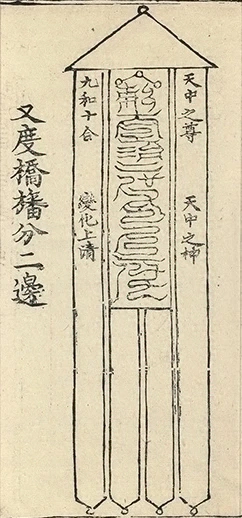 天中之尊　天中之神
九和十合　變化上清
又度橋旛分二邊